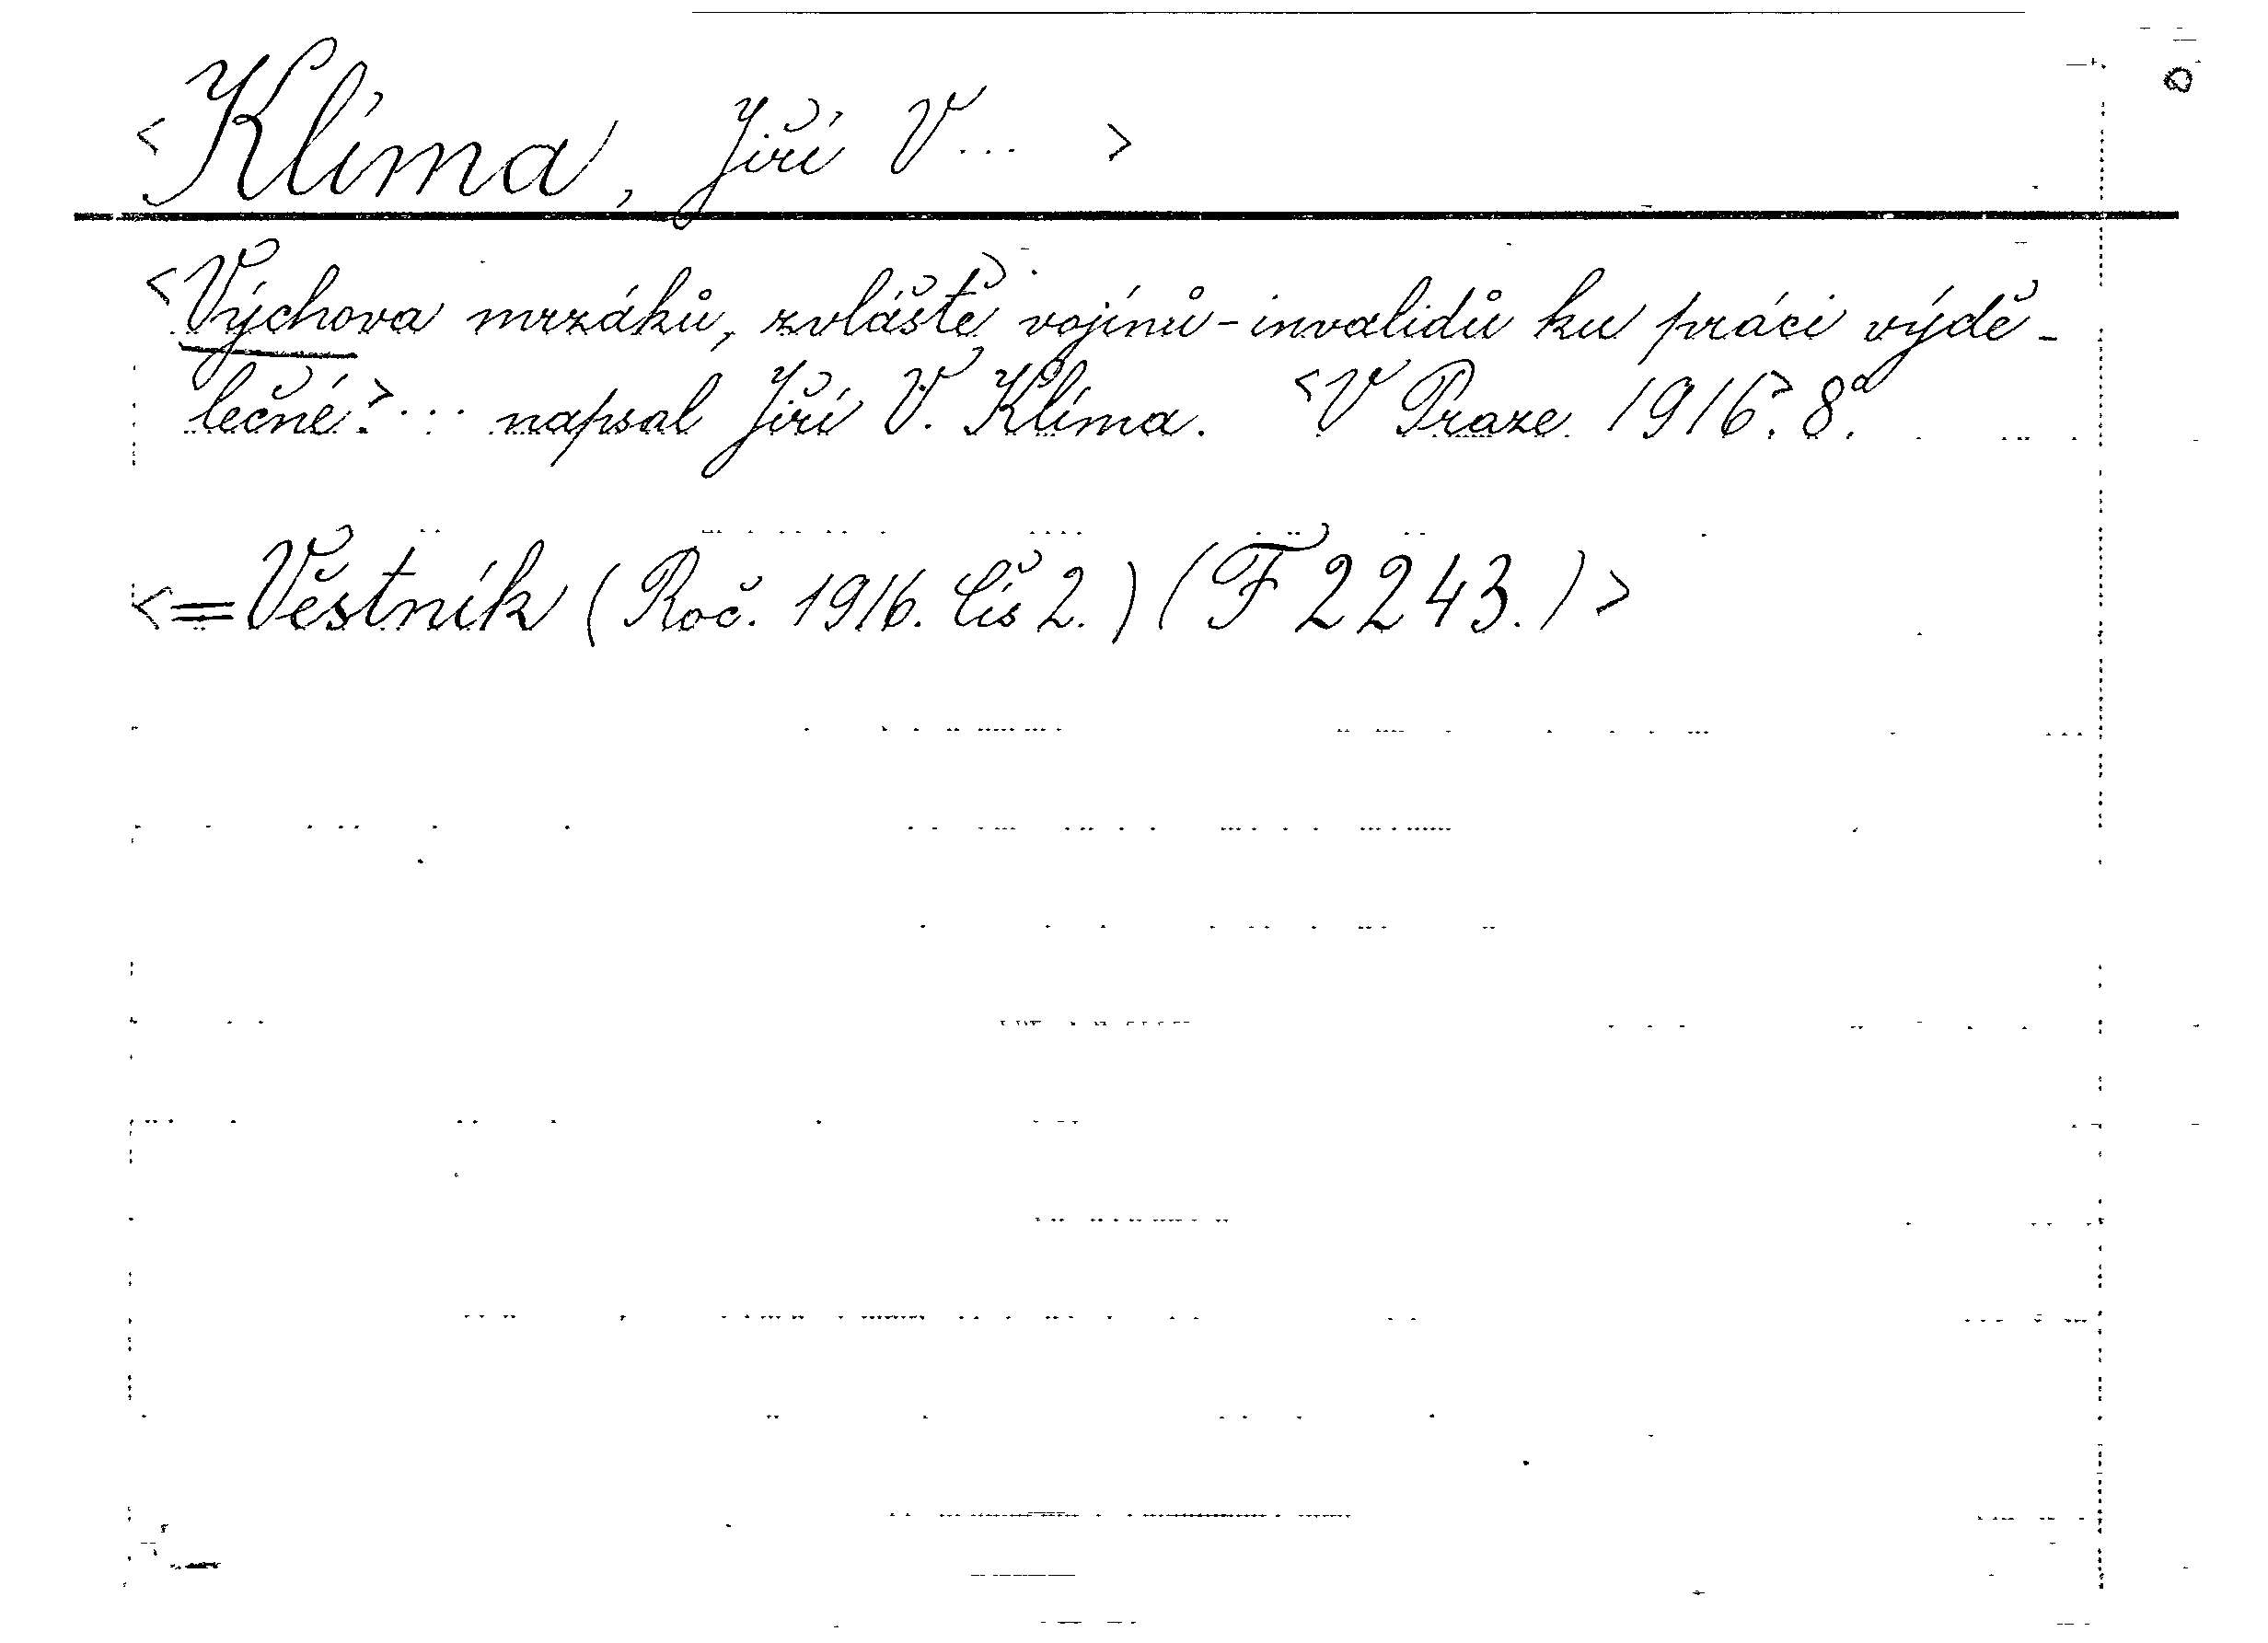 <Klíma, Jiří V... >
<Výchova mrzáků, zvláště vojínů-invalidů ku práci výdě-
lečné.>... napsal Jiří V. Klíma. <V Praze 1916>. 8°.
<=Věstník (Roč. 1916. čís 2.) (F 2243.)>